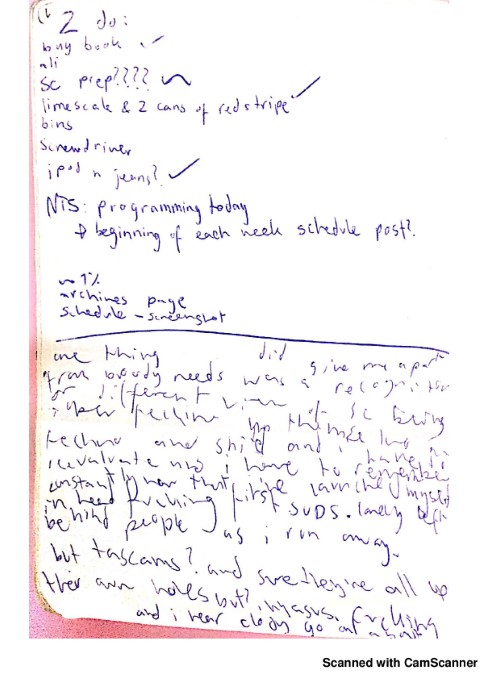 2 do:
buy book ✓
ali
sc prep????
limescale & 2 cans of redstripe ✓
bins
screwdriver
ipod n jeans? ✓
NTS: programming today
beginning of each week schedule post?
1%
archives page
schedule - screenshot
one thing did give me apart
from bready needs was a
or different view of sc being
up themselves
techno and shit and i have to
reevaluate and i have to remember
constantly now that i've launched myself
in head fucking first SUDS. lonely left
behind people as i run away.
but tascams? and sure they're all up
their own holes but? fucking
and i hear go on again
Scanned with CamScanner